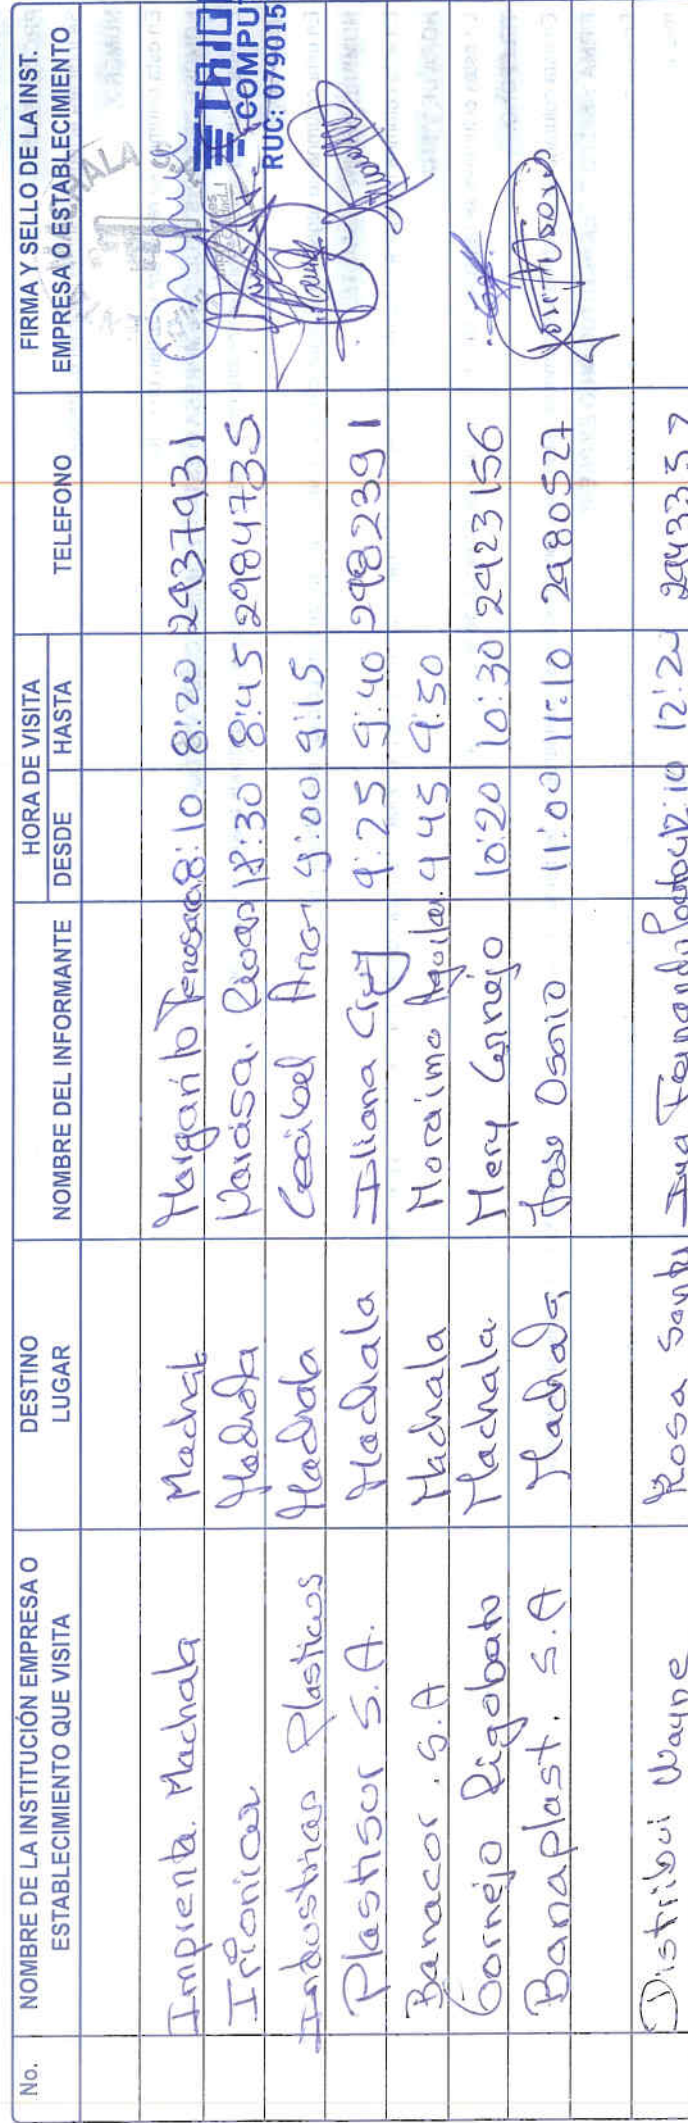 No. NOMBRE DE LA INSTITUCIÓN EMPRESA O ESTABLECIMIENTO QUE VISITA DESTINO LUGAR NOMBRE DEL INFORMANTE HORA DE VISITA DESDE HASTA TELEFONO FIRMA Y SELLO DE LA INST. EMPRESA O ESTABLECIMIENTO
Imprenta Machala Machala Margarito 8:10 8:20 2937931
Machala 8:30 8:45 2984735
TRIO
COMPU
RUC: 079015
Industrias Plasticos Machala Cecibel 9:00 9:15
Plastisur S.A. Machala Iliana Cruz 9:25 9:40 2982391
Banacor. S.A Machala Moraima Aguilar 9 45 9:50
Cornejo Rigobato Machala Mery Cornejo 10:20 10:30 2923156
Banaplast. S.A Machala Jose Osorio 11:00 11:10 2980527
Distribui Wayne Rosa Santa Ing Fernando 12:10 12:20 2943357